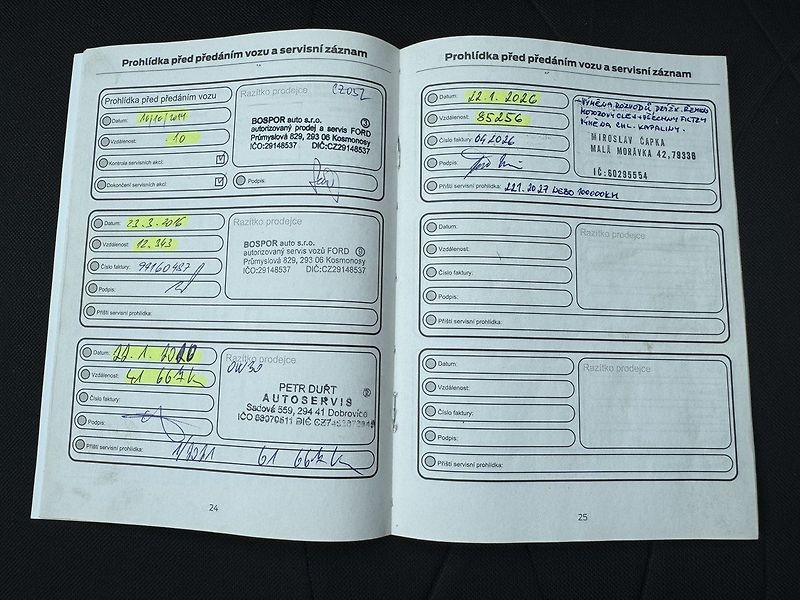 Prohlídka před předáním vozu a servisní záznam
Prohlídka před předáním vozu
Datum: 10/10/2014
Vzdálenost: 10
Kontrola servisních akcí:
Dokončení servisních akcí:
Razítko prodejce CZ052
BOSPOR auto s.r.o. 3
autorizovaný prodej a servis FORD
Průmyslová 829, 293 06 Kosmonosy
IČO:29148537 DIČ:CZ29148537
Podpis:
Datum: 23.3.2016
Vzdálenost: 12.343
Číslo faktury: 99160487
Podpis:
Příští servisní prohlídka:
Razítko prodejce
BOSPOR auto s.r.o.
autorizovaný servis vozů FORD 9
Průmyslová 829, 293 06 Kosmonosy
IČO:29148537 DIČ:CZ29148537
Datum: 22.1.2020
Vzdálenost: 41 667k
Číslo faktury:
Podpis:
Příští servisní prohlídka: 1/2021 61 667k
Razítko prodejce
0W30
PETR DUŘT 2
AUTOSERVIS
Sadová 559, 294 41 Dobrovice
24
Prohlídka před předáním vozu a servisní záznam
Datum: 22.1.2026
Vzdálenost: 85256
Číslo faktury: 042026
Podpis:
Příští servisní prohlídka: 22.1.2027 NEBO 100000KM
-VÝMĚNA ROZVODŮ, DRÁŽK. ŘEMEN
MOTOROVÝ OLEJ+VŠECHNY FILTRY
VÝMĚNA CHL. KAPALINY.
MIROSLAV ČAPKA
MALÁ MORÁVKA 42,79336
IČ:60295554
Datum:
Vzdálenost:
Číslo faktury:
Podpis:
Příští servisní prohlídka:
Razítko prodejce
Datum:
Vzdálenost:
Číslo faktury:
Podpis:
Příští servisní prohlídka:
Razítko prodejce
25